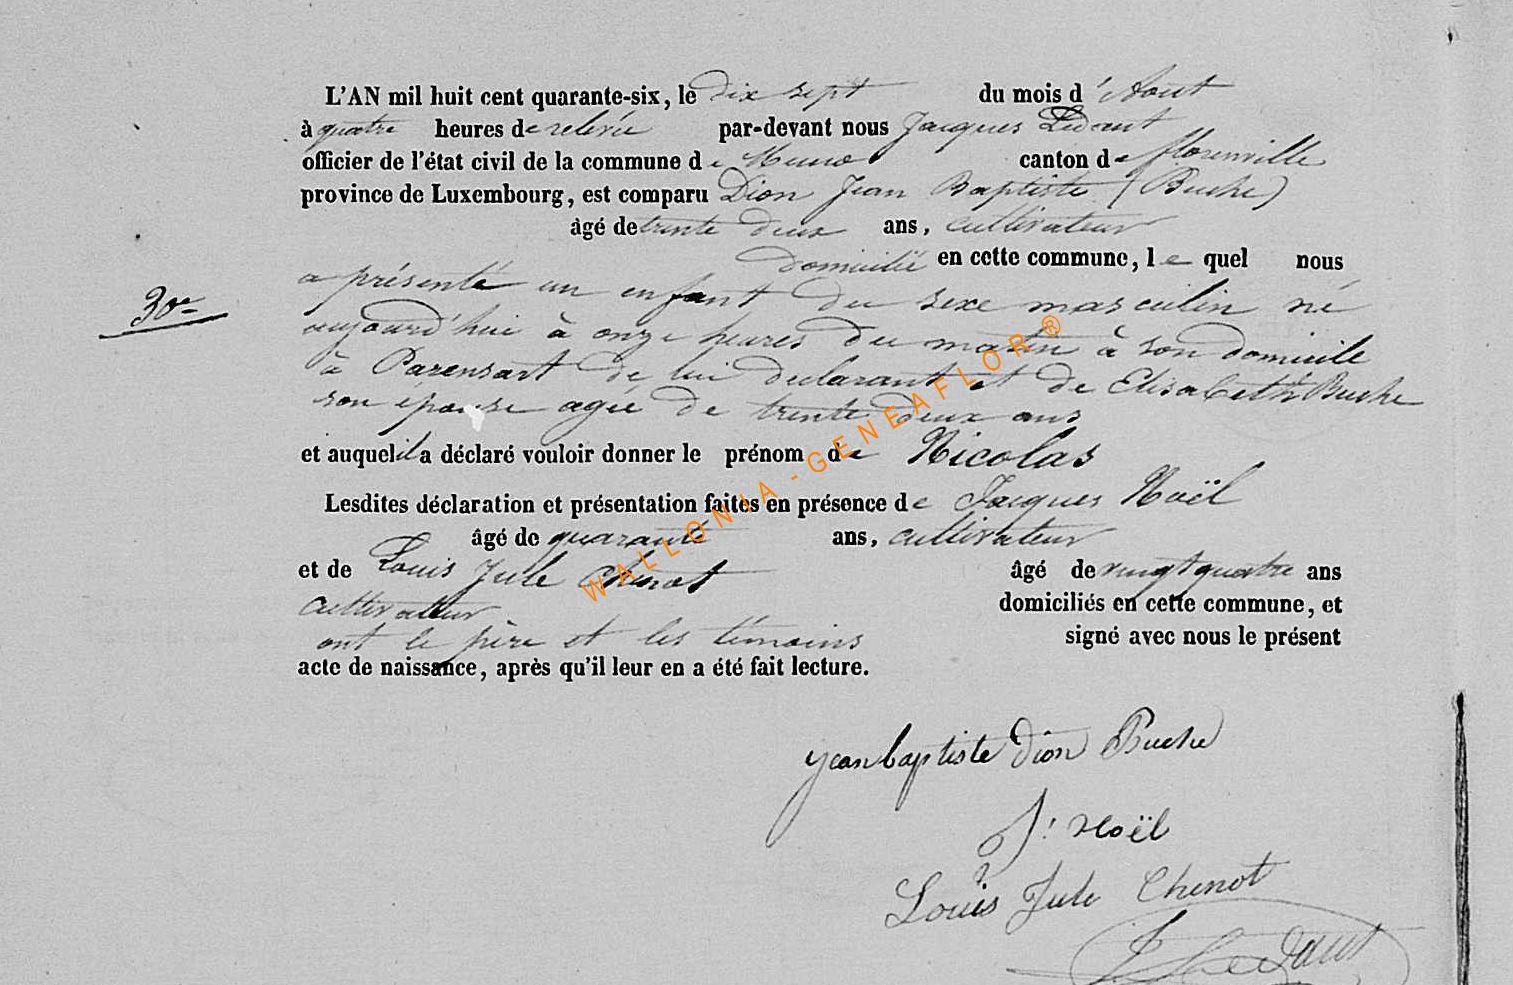 L'AN mil huit cent quarante-six, le dix sept du mois d'Aout
à quatre heures de relevée par-devant nous Jacques Ledant
officier de l'état civil de la commune de Muno canton de florenville
province de Luxembourg, est comparu Dion Jean Baptiste (Buche)
àgé de trente deux ans, cultivateur
domicilié en cette commune, le quel nous
a présenté un enfant du sexe masculin né
30e
aujourd'hui à onze heures du matin à son domicile
à Parensart de lui declarant et de Elisabeth Buche
son epouse agée de trente deux ans
et auquel il a déclaré vouloir donner le prénom de Nicolas
Lesdites déclaration et présentation faites en présence de Jacques Noël
âgé de quarante ans, cultivateur
et de Louis Jule Chenot âgé de vingt quatre ans
cultivateur domiciliés en cette commune, et
ont le père et les témoins signé avec nous le présent
acte de naissance, après qu'il leur en a été fait lecture.
WALLONIA-GENEAFLOR®
jean baptiste Dion Buche
J: Noël
Louis Jule Chenot
J Ledant